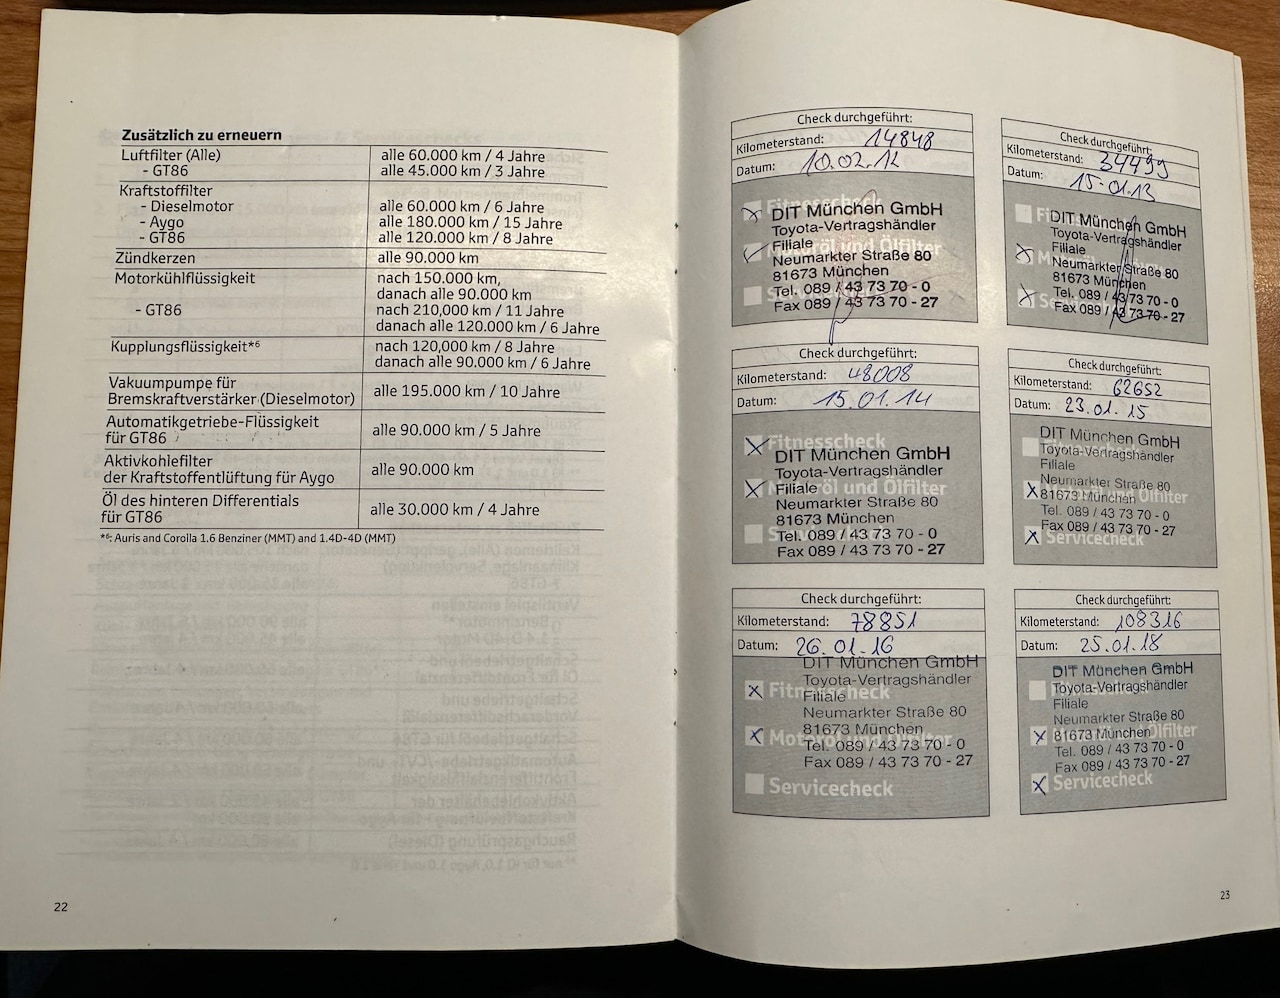 Zusätzlich zu erneuern
Luftfilter (Alle) alle 60.000 km / 4 Jahre
- GT86 alle 45.000 km / 3 Jahre
Kraftstoffilter
- Dieselmotor alle 60.000 km / 6 Jahre
- Aygo alle 180.000 km / 15 Jahre
- GT86 alle 120.000 km / 8 Jahre
Zündkerzen alle 90.000 km
Motorkühlflüssigkeit nach 150.000 km,
danach alle 90.000 km
- GT86 nach 210,000 km / 11 Jahre
danach alle 120.000 km / 6 Jahre
Kupplungsflüssigkeit*⁶ nach 120,000 km / 8 Jahre
danach alle 90.000 km / 6 Jahre
Vakuumpumpe für
Bremskraftverstärker (Dieselmotor) alle 195.000 km / 10 Jahre
Automatikgetriebe-Flüssigkeit
für GT86 alle 90.000 km / 5 Jahre
Aktivkohlefilter
der Kraftstoffentlüftung für Aygo alle 90.000 km
Öl des hinteren Differentials
für GT86 alle 30.000 km / 4 Jahre
*⁶: Auris and Corolla 1.6 Benziner (MMT) and 1.4D-4D (MMT)
22
Check durchgeführt:
Kilometerstand: 14848
Datum: 10.02.12
DIT München GmbH
Toyota-Vertragshändler
Filiale
Motoröl und Ölfilter
Neumarkter Straße 80
81673 München
Tel. 089 / 43 73 70 - 0
Fax 089 / 43 73 70 - 27
Check durchgeführt:
Kilometerstand: 34499
Datum: 15.01.13
DIT München GmbH
Toyota-Vertragshändler
Filiale
Neumarkter Straße 80
81673 München
Tel. 089 / 43 73 70 - 0
Fax 089 / 43 73 70 - 27
Check durchgeführt:
Kilometerstand: 48008
Datum: 15.01.14
Fitnesscheck
DIT München GmbH
Toyota-Vertragshändler
Filiale
Motoröl und Ölfilter
Neumarkter Straße 80
81673 München
Tel. 089 / 43 73 70 - 0
Fax 089 / 43 73 70 - 27
Check durchgeführt:
Kilometerstand: 62652
Datum: 23.01.15
DIT München GmbH
Toyota-Vertragshändler
Filiale
Neumarkter Straße 80
81673 München
Tel. 089 / 43 73 70 - 0
Fax 089 / 43 73 70 - 27
Servicecheck
Check durchgeführt:
Kilometerstand: 78851
Datum: 26.01.16
DIT München GmbH
Toyota-Vertragshändler
Fitnesscheck
Filiale
Neumarkter Straße 80
81673 München
Motoröl und Ölfilter
Tel. 089 / 43 73 70 - 0
Fax 089 / 43 73 70 - 27
Servicecheck
Check durchgeführt:
Kilometerstand: 108316
Datum: 25.01.18
DIT München GmbH
Toyota-Vertragshändler
Filiale
Neumarkter Straße 80
81673 München
Motoröl und Ölfilter
Tel. 089 / 43 73 70 - 0
Fax 089 / 43 73 70 - 27
Servicecheck
23